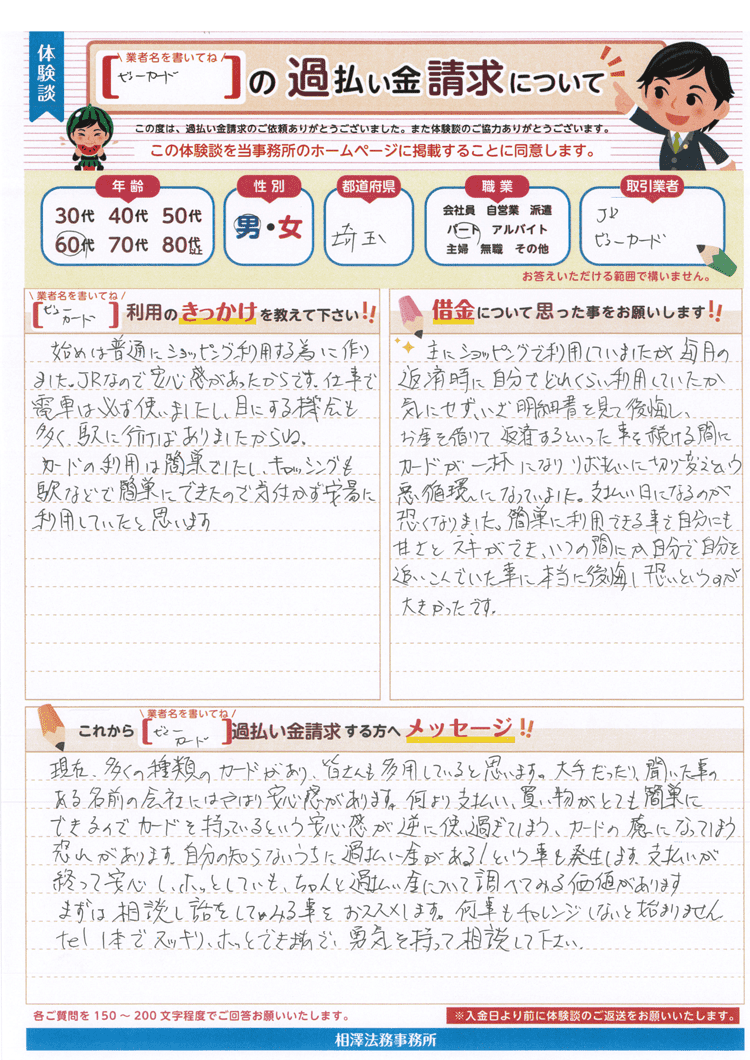 体験談
業者名を書いてね
[ビューカード]の過払い金請求について
この度は、過払い金請求のご依頼ありがとうございました。また体験談のご協力ありがとうございます。
この体験談を当事務所のホームページに掲載することに同意します。
年齢
30代 40代 50代
60代 70代 80代以上
性別
男・女
都道府県
埼玉
職業
会社員 自営業 派遣
パート アルバイト
主婦 無職 その他
取引業者
JR
ビューカード
お答えいただける範囲で構いません。
業者名を書いてね
[ビューカード]利用のきっかけを教えて下さい!!
始めは普通にショッピング利用する為に作り
ました。JRなので安心感があったからです。仕事で
電車は必ず使いましたし、目にする機会も
多く、駅に行けばありましたからね。
カードの利用は簡単でしたし、キャッシングも
駅などで簡単にできたので気付かず安易に
利用していたと思います
借金について思った事をお願いします!!
主にショッピングで利用していましたが毎月の
返済時に自分でどれくらい利用していたか
気にせず、いざ明細書を見て後悔し、
お金を借りて返済するといった事を続ける間に
カードが一杯になりリボ払いに切り変えという
悪循環になっていました。支払い日になるのが
恐くなりました。簡単に利用できる事で自分にも
甘さとスキができ、いつの間にか自分で自分を
追いこんでいた事に本当に後悔し恐いというのが
大きかったです。
業者名を書いてね
これから[ビューカード]過払い金請求する方へメッセージ!!
現在、多くの種類のカードがあり、皆さんも多用していると思います。大手だったり、聞いた事の
ある名前の会社にはやはり安心感があります。何より支払い、買い物がとても簡単に
できるのでカードを持っているという安心感が逆に使い過ぎてしまう、カードの魔になってしまう
恐れがあります。自分の知らないうちに過払い金がある!という事も発生します。支払いが
終って安心し、ホッとしていても、ちゃんと過払い金について調べてみる価値があります
まずは相談し話をしてみる事をおススメします。何事もチャレンジしないと始まりません
tel 1本でスッキリ、ホッとできますので、勇気を持って相談して下さい。
各ご質問を150～200文字程度でご回答お願いいたします。
※入金日より前に体験談のご返送をお願いいたします。
相澤法務事務所